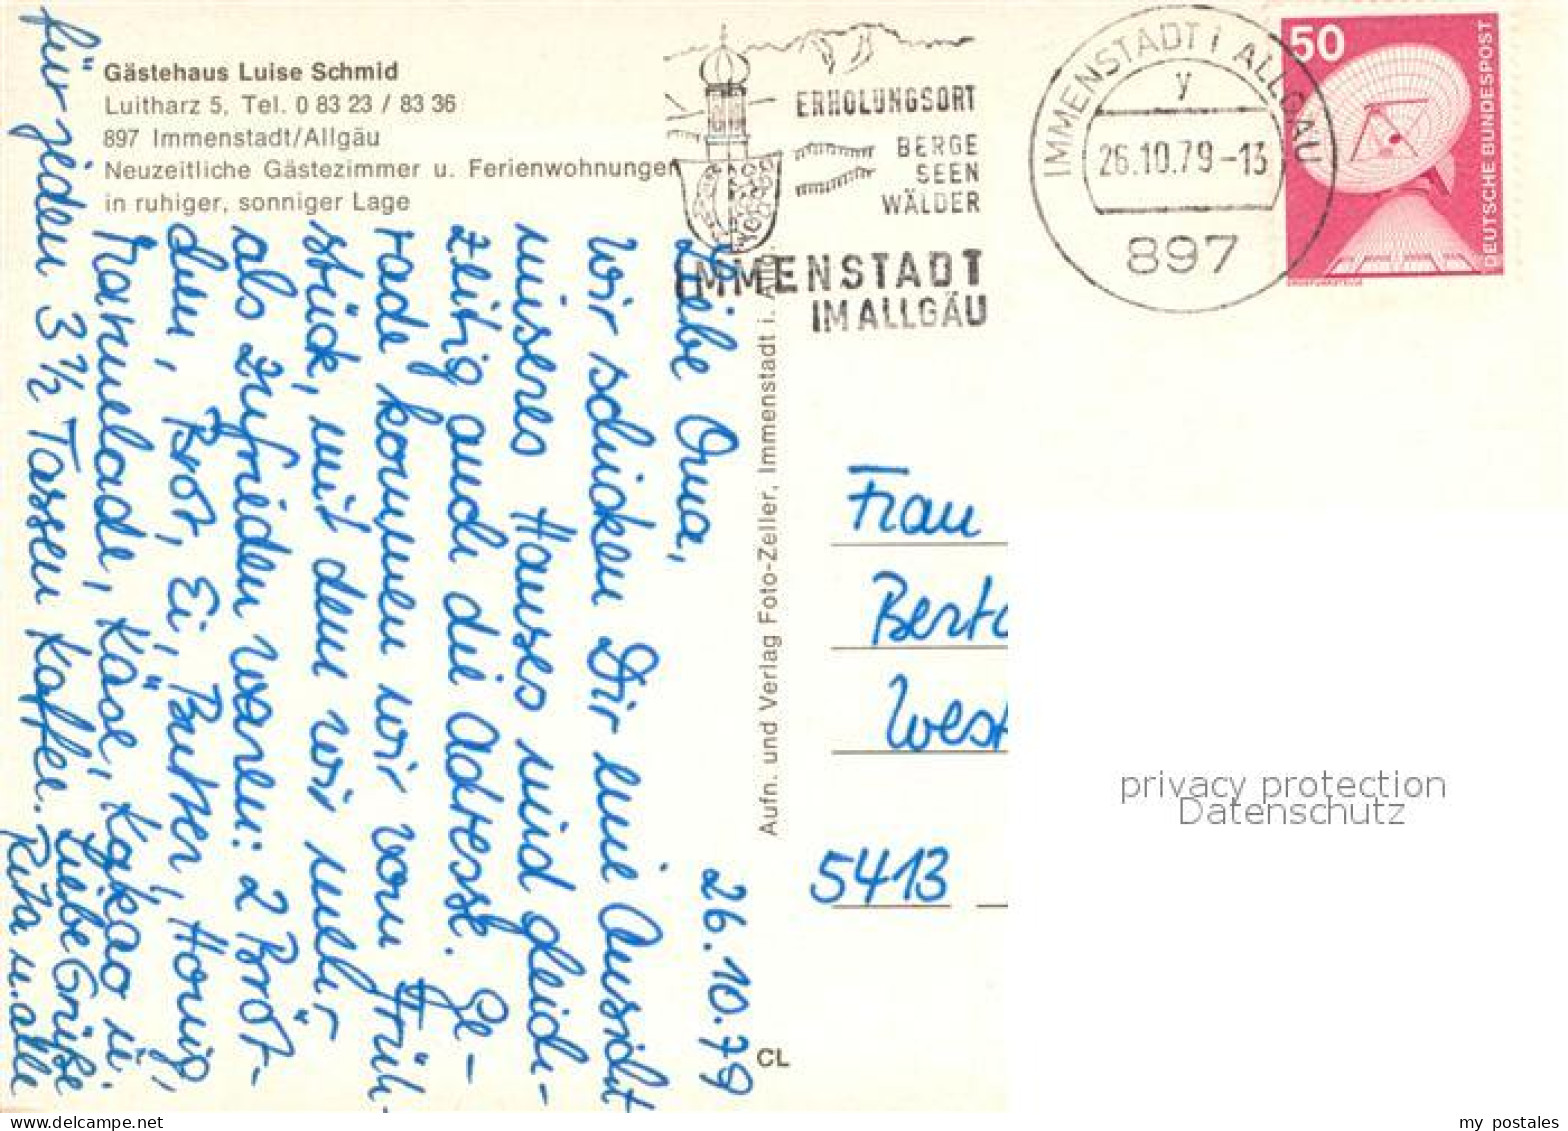 Gästehaus Luise Schmid
Luitharz 5, Tel. 0 83 23 / 83 36
897 Immenstadt/Allgäu
Neuzeitliche Gästezimmer u. Ferienwohnungen
in ruhiger, sonniger Lage
ERHOLUNGSORT
BERGE
SEEN
WÄLDER
IMMENSTADT
IM ALLGÄU
IMMENSTADT i ALLGÄU
y
26.10.79-13
897
50
DEUTSCHE BUNDESPOST
ERDEFUNKSTELLE
26.10.79
Liebe Oma,
wir schicken Dir eine Ansicht
unseres Hauses und gleich-
zeitig auch die Adresse. Ge-
rade kommen wir vom Früh-
stück, mit dem wir mehr
als zufrieden waren: 2 Bröt-
chen, Brot, Ei, Butter, Honig,
Marmelade, Käse, Kakao u.
für jeden 3 1/2 Tassen Kaffee.
Liebe Grüße
Rita u. alle
Aufn. und Verlag Foto-Zeller, Immenstadt i. Allg.
CL
Frau
Berta
West
5413
privacy protection
Datenschutz
www.delcampe.net
my_postales